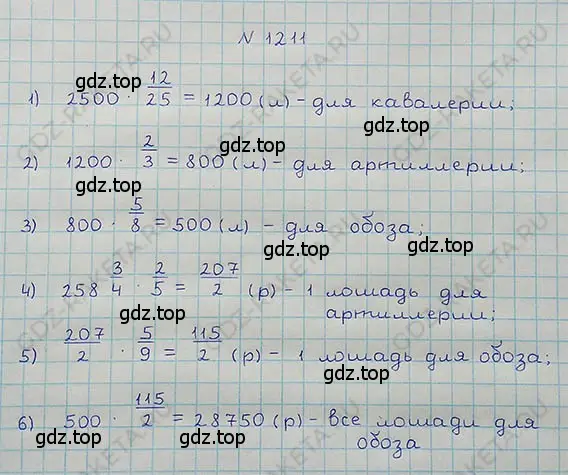 N 1211
1) 2500 · 12/25 = 1200 (л) - для кавалерии;
2) 1200 · 2/3 = 800 (л) - для артиллерии;
3) 800 · 5/8 = 500 (л) - для обоза;
4) 258 3/4 · 2/5 = 207/2 (р) - 1 лошадь для
артиллерии;
5) 207/2 · 5/9 = 115/2 (р) - 1 лошадь для обоза;
6) 500 · 115/2 = 28750 (р) - все лошади для
обоза
gdz.top
gdz.top
gdz.top
gdz.top
gdz.top
gdz.top
gdz.top
gdz.top
gdz.top
gdz.top
GDZ-RAKETA.RU